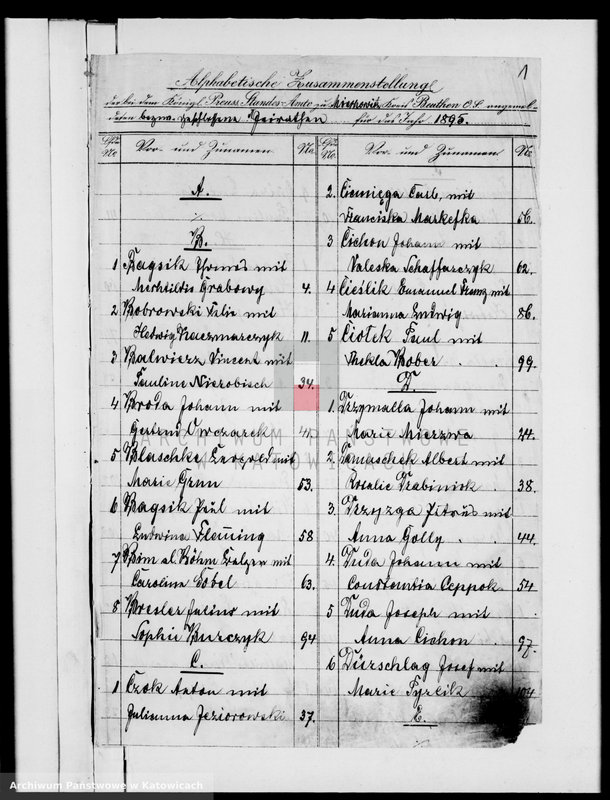 1
Alphabetische Zusammenstellung
der bei dem Königl. Preuss. Standes-Amte zu Miechowitz Kreis Beuthen O.S. angemel-
deten bezw. geschlossene Heirathen für das Jahr 1895.
Lfde No. Vor- und Zunamen No.
A.
B.
1 Bagsik Thomas mit
Mechtildis Grabowy 4.
2 Bobrowski Felix mit
Hedwig Kaczmarczyk 11.
3 Balwierz Vincent mit
Pauline Nierobisch 34.
4 Broda Johann mit
Gertrud Owczarek 41.
5 Blaschke Leopold mit
Marie Grun 53.
6 Bagsik Paul mit
Ludwina Fleming 58
7 Bim al. Böhm mit
Caroline Gobel 63.
8 Bresler mit
Sophie Burczyk 94
C.
1 Czok Anton mit
Julianna Jeziorowski 37.
Lfde No. Vor- und Zunamen No.
2. Ciemięga Carl, mit
Franciska Markefka 56.
3 Cichon Johann mit
Valeska Schaffarczyk 62.
4 Cieślik Emanuel Franz mit
Marianna Ludwig 86.
5 Ciołek Paul mit
Thekla Bober 99.
D
1. Drzymalla Johann mit
Marie Mierzwa 24.
2. Damaschek Albert mit
Rosalie Drabiniok 38.
3. Drzyzga Petrus mit
Anna Golly 44.
4. Duda Johann mit
Constantia Ceppok 54
5 Duda Joseph mit
Anna Cichon 97.
6 Dürschlag Josef mit
Marie Pyrcik 104
E.
ARCHIWUM PAŃSTWOWE
W KATOWICACH
Archiwum Państwowe w Katowicach